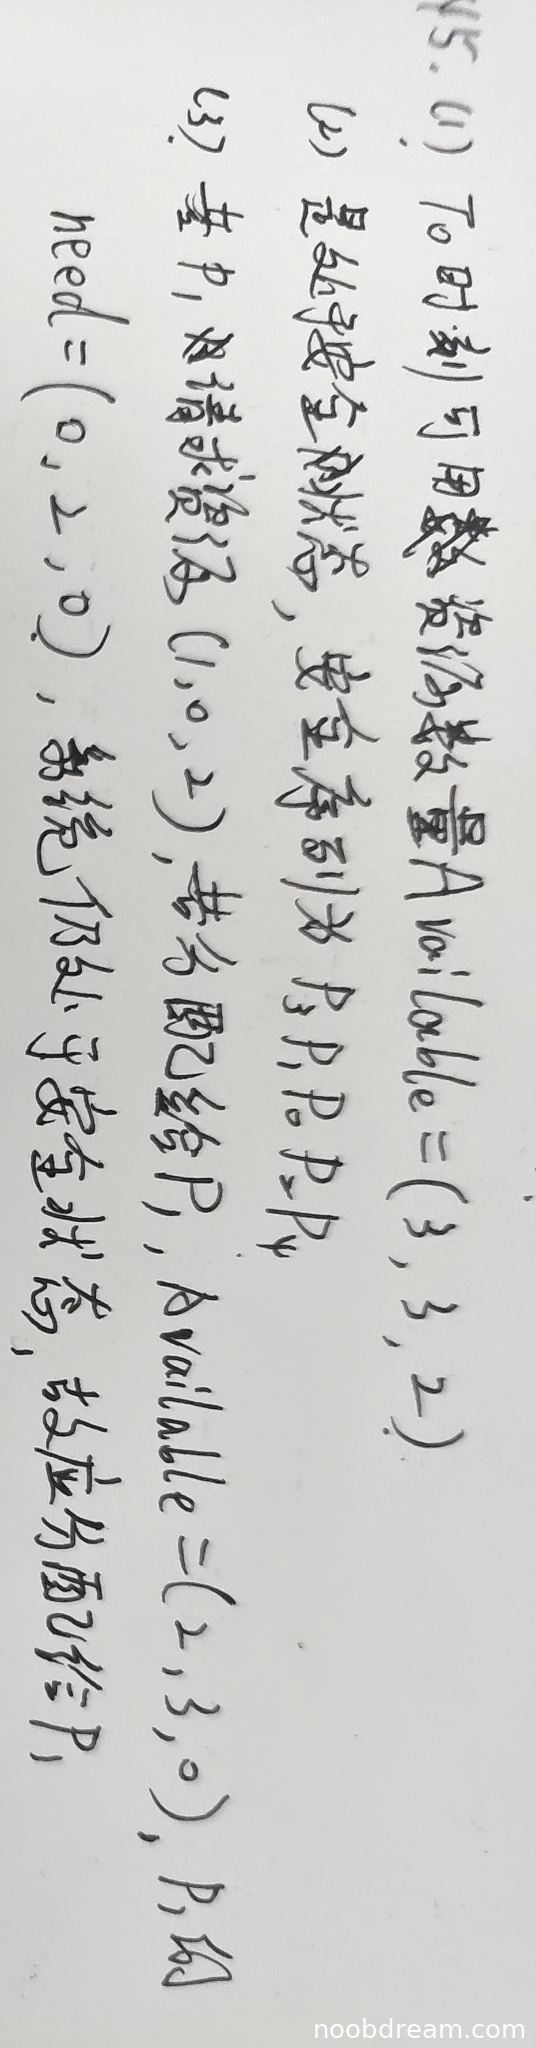 45. (1) T0时刻可用资源数量Available=(3,3,2)
(2) 是处于安全状态，安全序列为P3P1P0P2P4
(3) 若P1请求资源(1,0,2),若分配给P1,Available=(2,3,0),P1的
need=(0,2,0),系统仍处于安全状态,故应分配给P1
noobdream.com